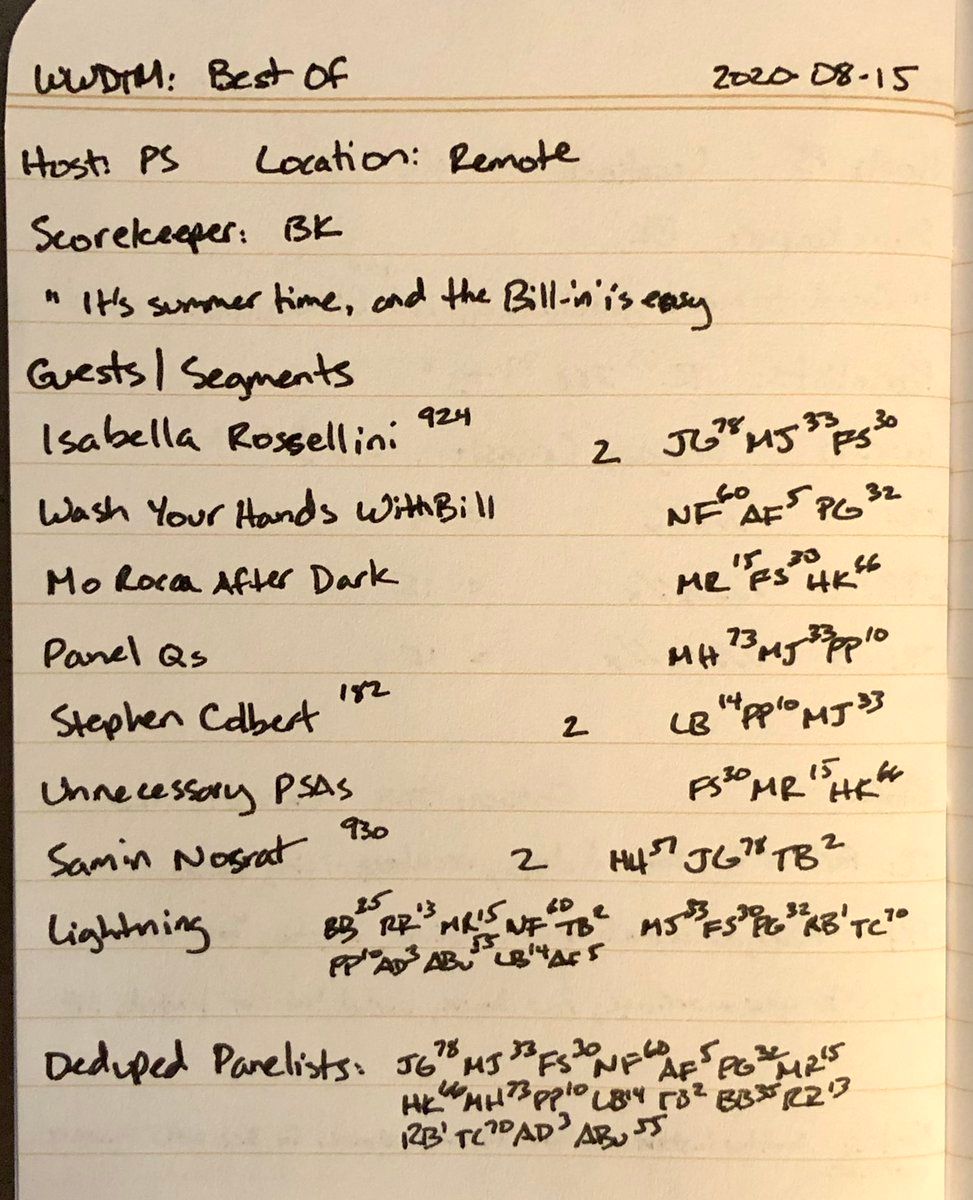 WWDTM: Best Of 2020-08-15
Host: PS Location: Remote
Scorekeeper: BK
" It's summer time, and the Bill-in' is easy
Guests / Segments
Isabella Rossellini 924 2 JG78 MJ33 FS30
Wash Your Hands With Bill NF60 AF5 PG32
Mo Rocca After Dark MR15 FS30 HK66
Panel Qs MH73 MJ33 PP10
Stephen Colbert 182 2 LB14 PP10 MJ33
Unnecessary PSAs FS30 MR15 HK66
Samin Nosrat 930 2 HH57 JG78 TB2
Lightning BB35 RR13 MR15 NF60 TB2 MJ33 FS30 PG32 RB1 TC70
PP10 AD3 ABu55 LB14 AF5
Deduped Panelists: JG78 MJ33 FS30 NF60 AF5 PG32 MR15
HK66 MH73 PP10 LB14 TB2 BB35 RR13
RB1 TC70 AD3 ABu55